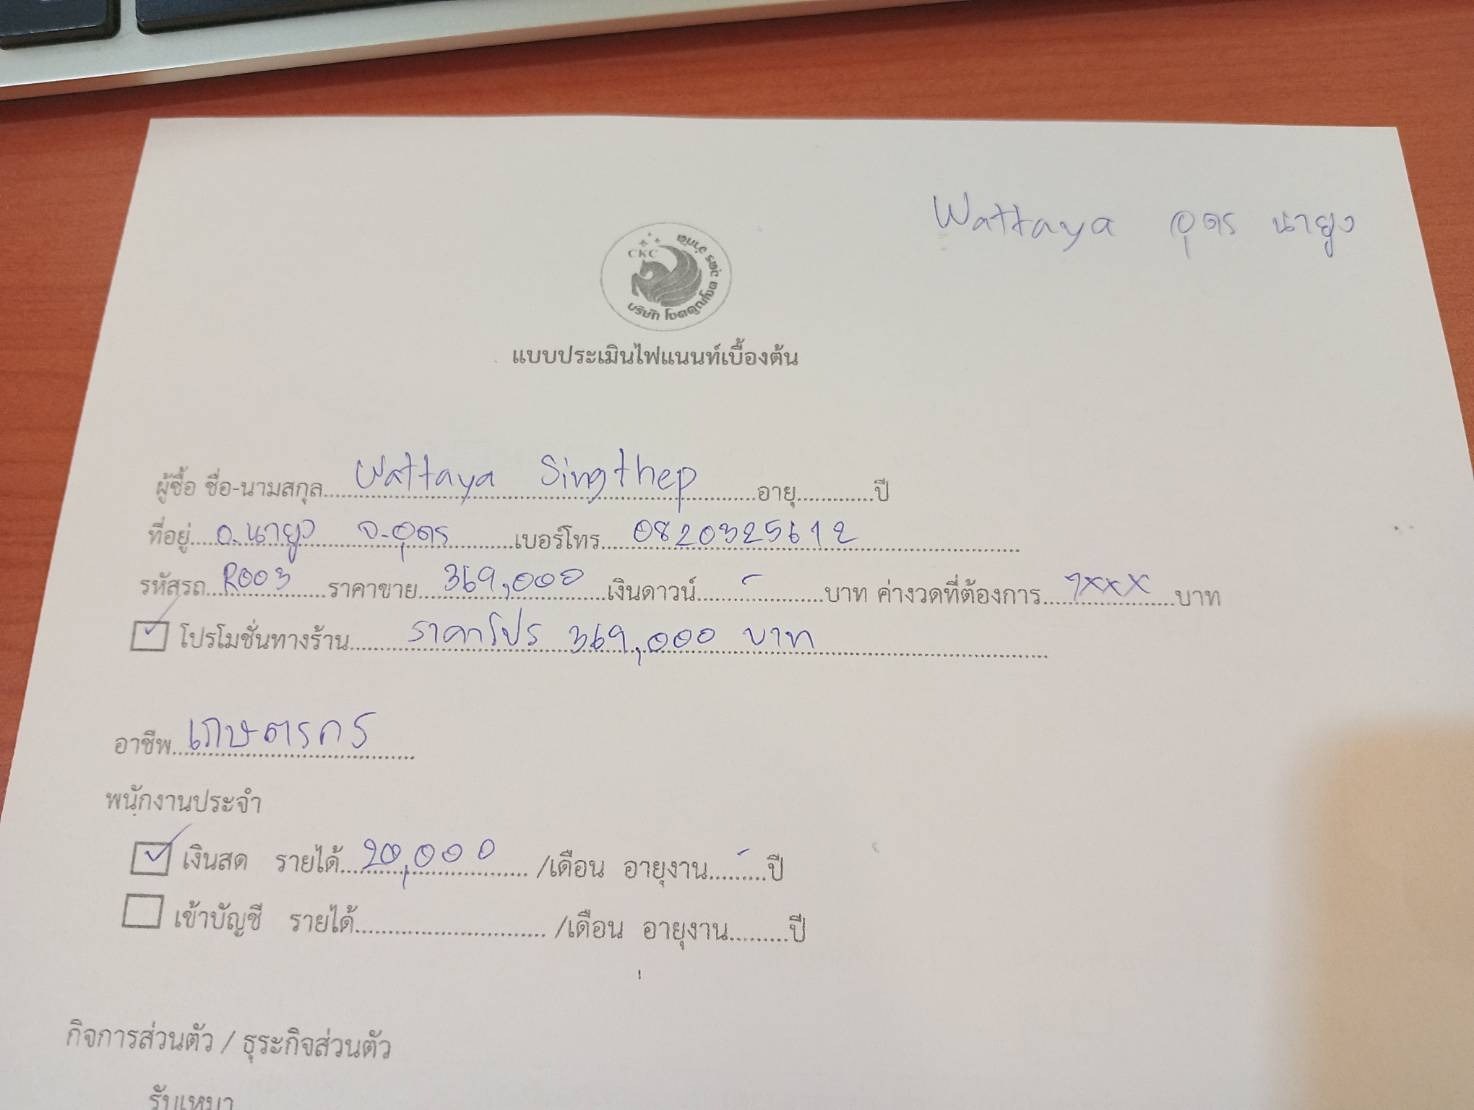 Wattaya อุดร นายูง
CKC
บริษัท โชคคูณโชค
แบบประเมินไฟแนนท์เบื้องต้น
ผู้ซื้อ ชื่อ-นามสกุล Wattaya Singthep อายุ ปี
ที่อยู่ อ.นายูง จ.อุดร เบอร์โทร 0820325612
รหัสรถ R003 ราคาขาย 369,000 เงินดาวน์ - บาท ค่างวดที่ต้องการ 7xxx บาท
โปรโมชั่นทางร้าน ราคาโปร 369,000 บาท
อาชีพ เกษตรกร
พนักงานประจำ
เงินสด รายได้ 20,000 /เดือน อายุงาน - ปี
เข้าบัญชี รายได้ /เดือน อายุงาน ปี
กิจการส่วนตัว / ธุระกิจส่วนตัว
รับเหมา